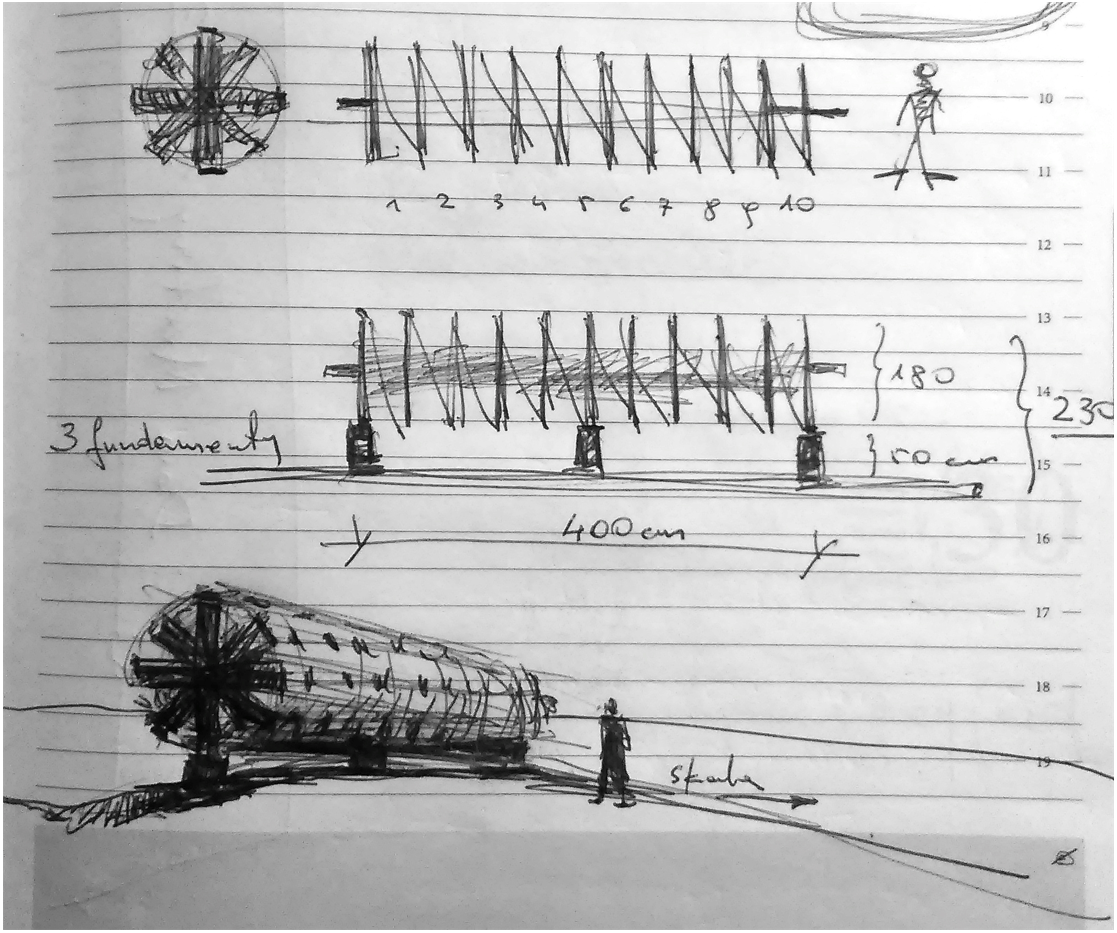 9
10
11
1 2 3 4 5 6 7 8 9 10
12
13
180
14
230
3 fundamenty
50 cm
15
400 cm
16
17
18
19